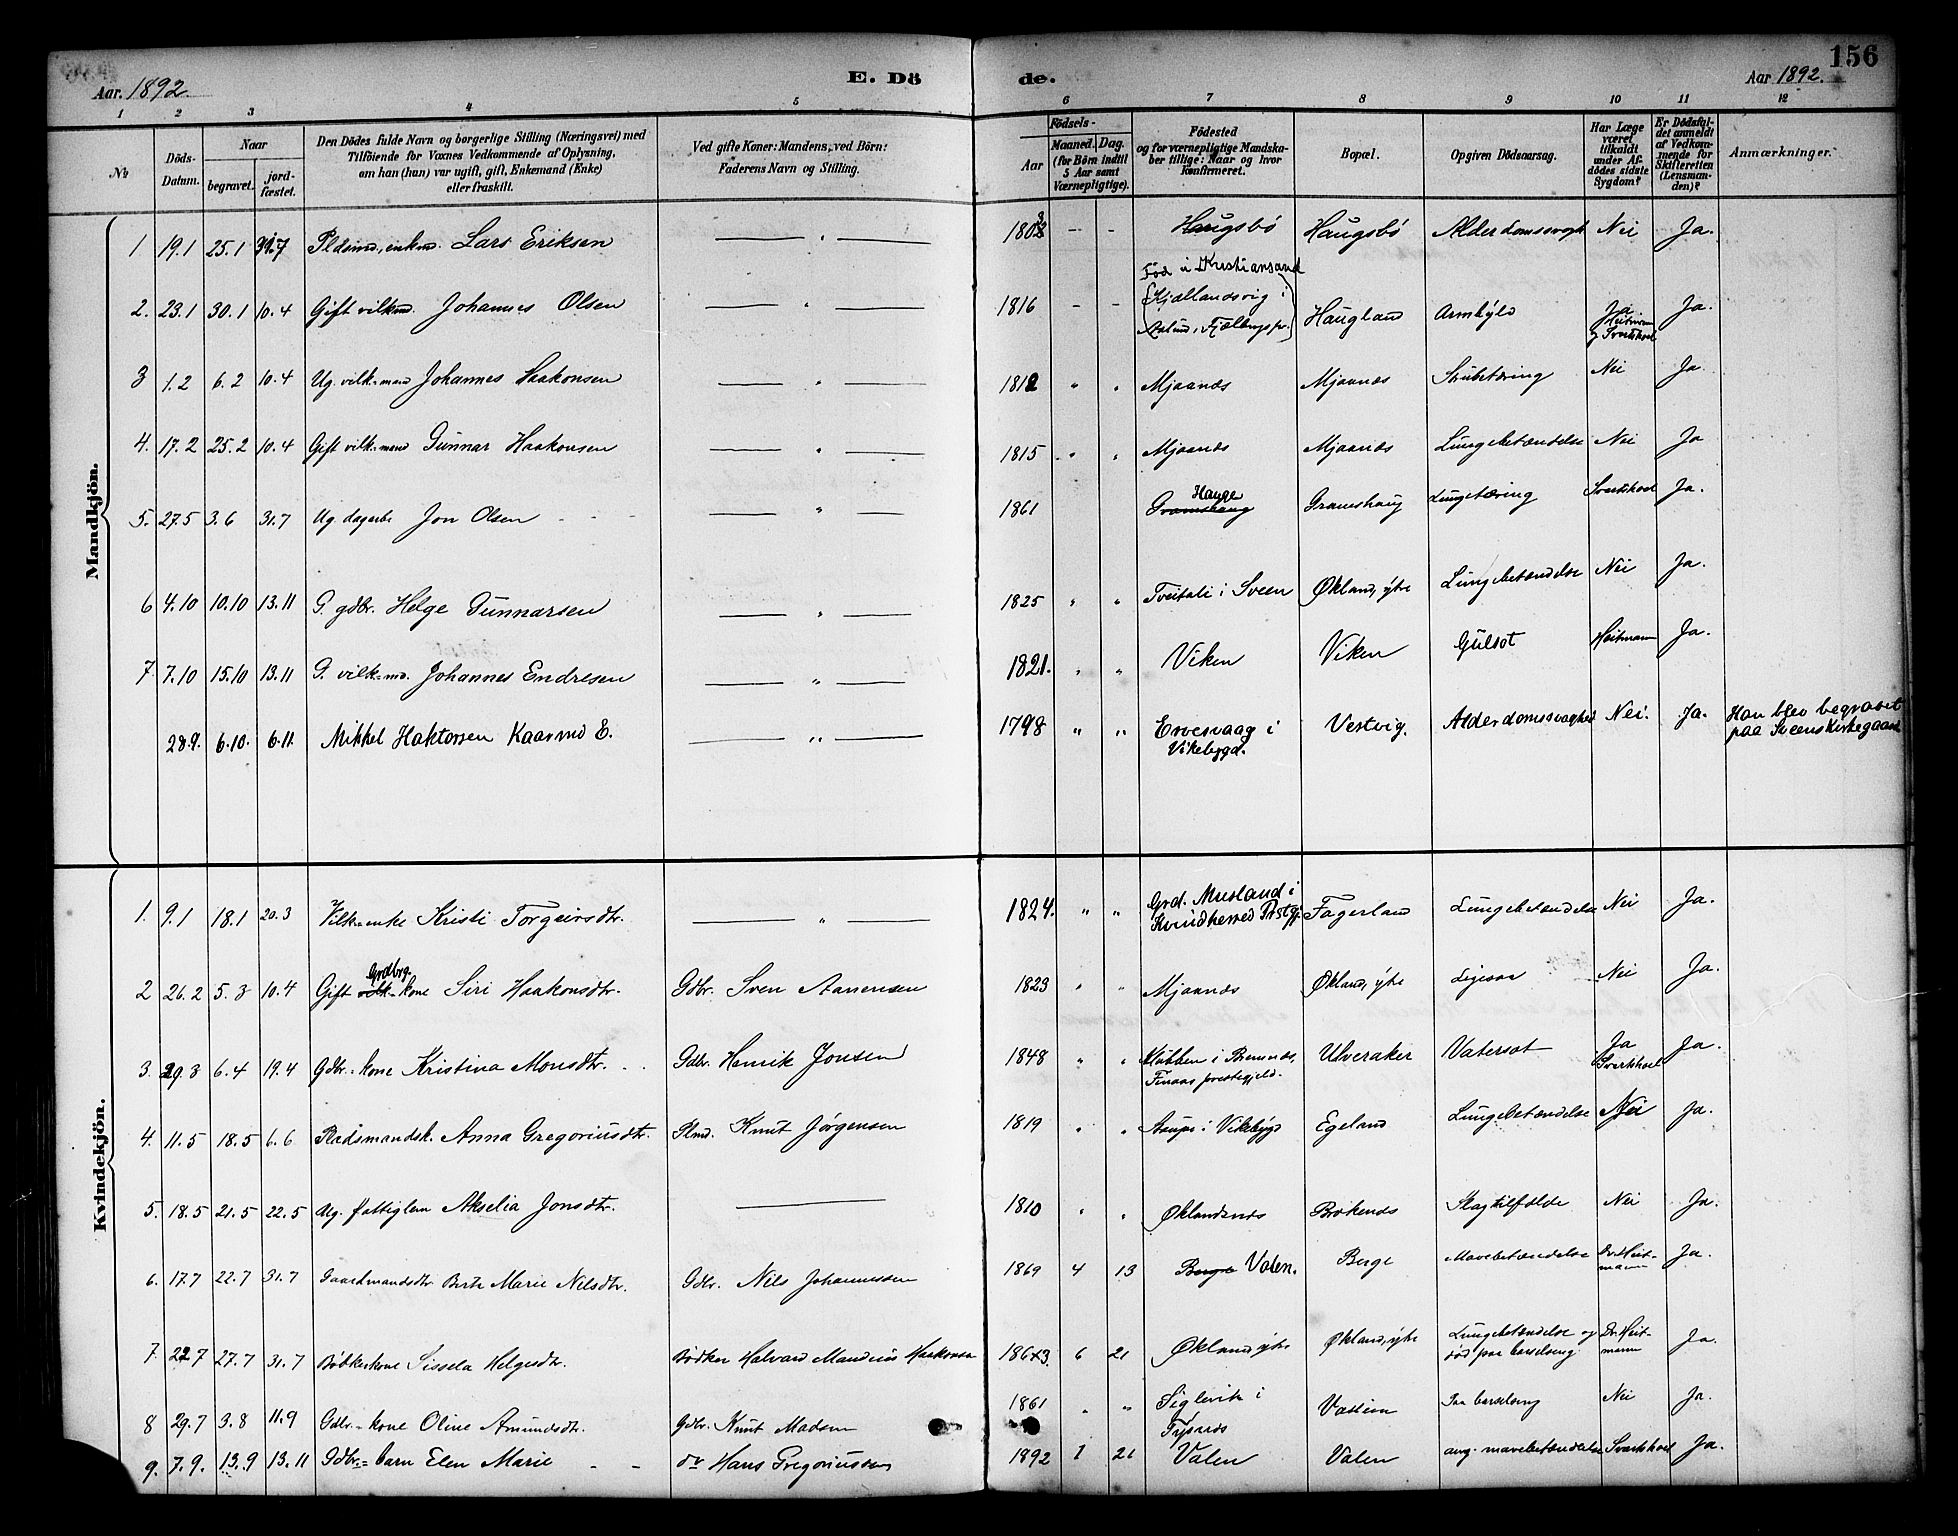 156
Aar. 1892.
E. Dö de.
Aar 1892.
1 2 3 4 5 6 7 8 9 10 11 12
№
Döds-Datum.
Naar
begravet.
jord-fæstet.
Den Dödes fulde Navn og borgerlige Stilling (Næringsvei) med
Tilföiende for Voxnes Vedkommende af Oplysning,
om han (hun) var ugift, gift, Enkemand (Enke)
eller fraskilt.
Ved gifte Koner: Mandens, ved Börn:
Faderens Navn og Stilling.
Födsels-
Aar
Maaned. Dag.
(for Börn indtil
5 Aar samt
Værnepligtige).
Födested
og for værnepligtige Mandska-
ber tillige: Naar og hvor
konfirmeret.
Bopæl.
Opgiven Dödsaarsag.
Har Læge
været
tilkaldt
under Af-
dödes sidste
Sygdom?
Er Dödsfal-
det anmeldt
af Vedkom-
mende for
Skifteretten
(Lensman-
den)?
Anmærkninger.
Mandkjön.
1 19.1 25.1 Lars Eriksen — " — - - Haugsbö Haugsbö Nei Ja.
2. 23.1 30.1 10.4 Gift vilkm. Johannes Olsen — " — 1816 - - Fød i Kristiansand Haugland Ja Ja.
3 1.2 6.2 10.4 Ug. vilk=mand Johannes Haakonsen — " — 1812 " " Mjaanes Mjaanes Nei Ja.
4. 17.2 25.2 10.4 Gift vilk=mand Gunnar Haakonsen — " — 1815 " " Mjaanes Mjaanes Lungebetændelse Nei Ja
5. 27.5 3.6 31.7 Ug. Jon Olsen — " — 1861 Hauge Gramshaug Gramshaug Lungetæring Svartskoel Ja.
6 4.10 10.10 13.11 G. gdbr. Helge Gunnarsen — " — 1825 " " i Sveen Økland, ytre Lungebetændelse Nei Ja.
7 7.10 15.10 13.11 G. vilk=md. Johannes Endresen — " — 1821. " " Viken Viken Gulsot Heitmann Ja.
28.9. 6.10. 6.11. Mikkel — " — 1798 " " i Vikebygd. Vestvig. Alderdomssvaghed Nei. Ja. Han blev begravet
paa Sveens Kirkegaard
Kvindekjön.
1. 9.1 18.1 20.3 Vilk=enke Kristi Torgeirsdtr. — " — 1824. " " Grd. Musland i
Kvindherred Prstgj. Fagerland Lungebetændelse Nei Ja.
2 26.2 5.3 10.4 Gift Grdbrg. vilk=kone Siri Haakonsdtr. Gdbr. Sven Aanensen 1823 " " Mjaanes Økland, ytre Nei Ja.
3. 29.3 6.4 19.4 Gdbr=kone Kristina Monsdtr. Gdbr. Henrik Jonsen 1848 " " i Bremnes,
Finaas prestegjeld. Ulveraker Vatersot Ja
Svartskoel Ja.
4. 11.5 18.5 6.6 Pladsmandsk. Anna Gregoriusdtr. Plmd. Knut Jørgensen 1819 " " i Vikebygd Egeland Lungebetændelse Nei Ja.
5. 18.5 21.5 22.5 Ug. fattiglem Akselia Jonsdtr. — 1810 " " Øklandsnes Brekenes Slagtilfælde Nei Ja.
6. 17.7 22.7 31.7 Gaardmandsdtr Berte Marie Nilsdtr. Gdbr. Nils Johannessen 1869 4 13 Berge Valen. Berge Mavebetændelse Dr. Heit-
mann Ja.
7. 22.7 27.7 31.7 Bödkerkone Sissela Helgesdtr. Bödker Halvard Mandius Haakonsen 6 21 Økland, ytre Økland, ytre Lungebetændelse og
död paa barselseng Dr. Heit-
mann Ja.
8 29.7 3.8 11.9 Gdbr.-kone Oline Amundsdtr. Gdbr. Knut Madsen 1861 " " Siglevik i
Tysnes Paa barselseng Nei Ja.
9. 7.9. 13.9 13.11 Gdbr=barn Elen Marie - - Hans Gregoriussen 1892 1 21 Valen Valen ang. mavebetændelse Svartskoel Ja.